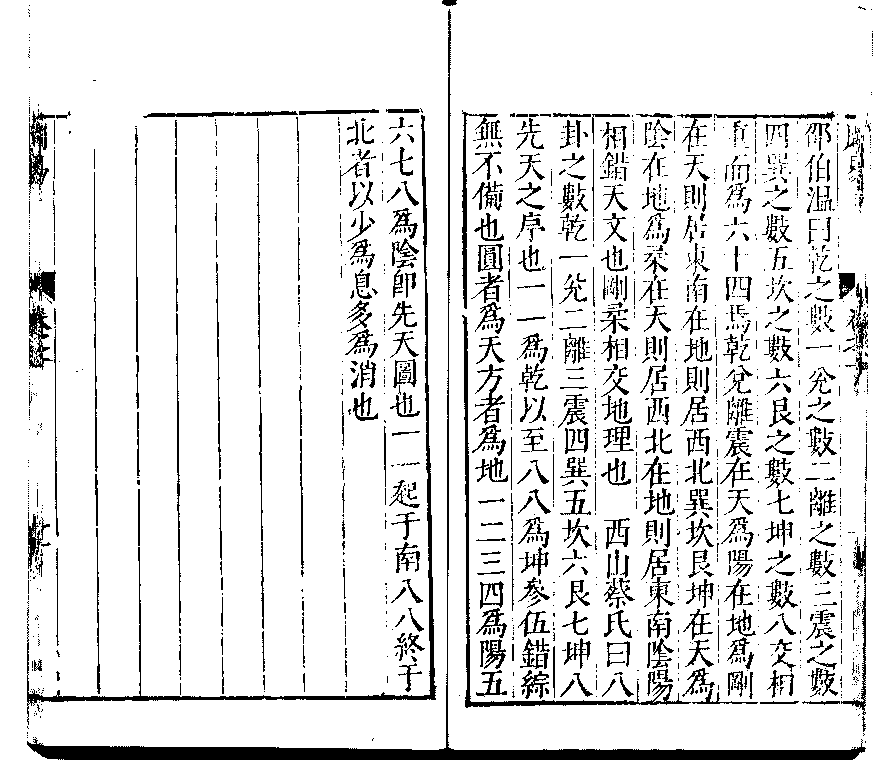 邵伯温曰乾之數一兌之數二離之數三震之數
四巽之數五坎之數六艮之數七坤之數八交相
重而爲六十四焉乾兌離震在天爲陽在地爲剛
在天則居東南在地則居西北巽坎艮坤在天爲
陰在地爲柔在天則居西北在地則居東南陰陽
相錯天文也剛柔相交地理也　西山蔡氏曰八
卦之數乾一兌二離三震四巽五坎六艮七坤八
先天之序也一一爲乾以至八八爲坤參伍錯綜
無不備也圓者爲天方者爲地一二三四爲陽五
六七八爲陰卽先天圖也一一起于南八八終于
北者以少爲息多爲消也